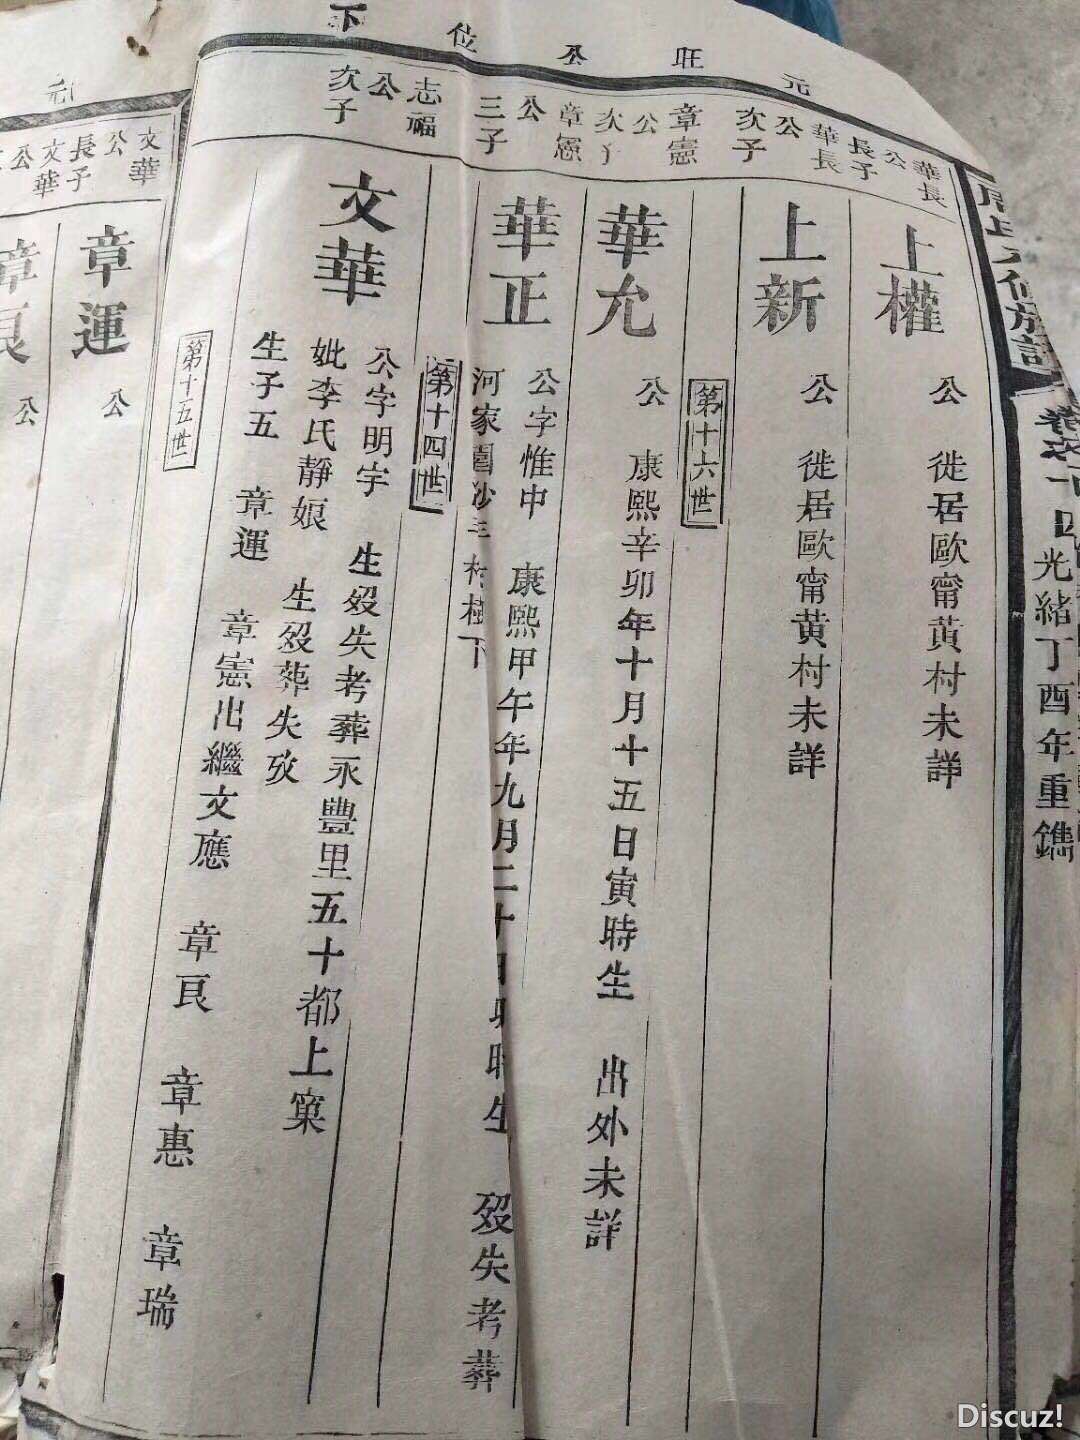 元旺公位下
卷之十四
光緒丁酉年重鐫
華長公長子
上權
公 徙居歐甯黃村未詳
華長公次子
上新
公 徙居歐甯黃村未詳
第十六世
章憲公次子
華允
公 康熙辛卯年十月十五日寅時生 出外未詳
章憲公三子
華正
公字惟中 康熙甲午年九月二十日時生 歿失考葬
河家園
下
第十四世
志福公次子
文華
公字明宇 生歿失考葬永豐里五十都上窠
妣李氏靜娘 生歿葬失攷
生子五 章運 章憲出繼文應 章良 章惠 章瑞
第十五世
文華公長子
章運
公
文華公
章良
公
元
Discuz!